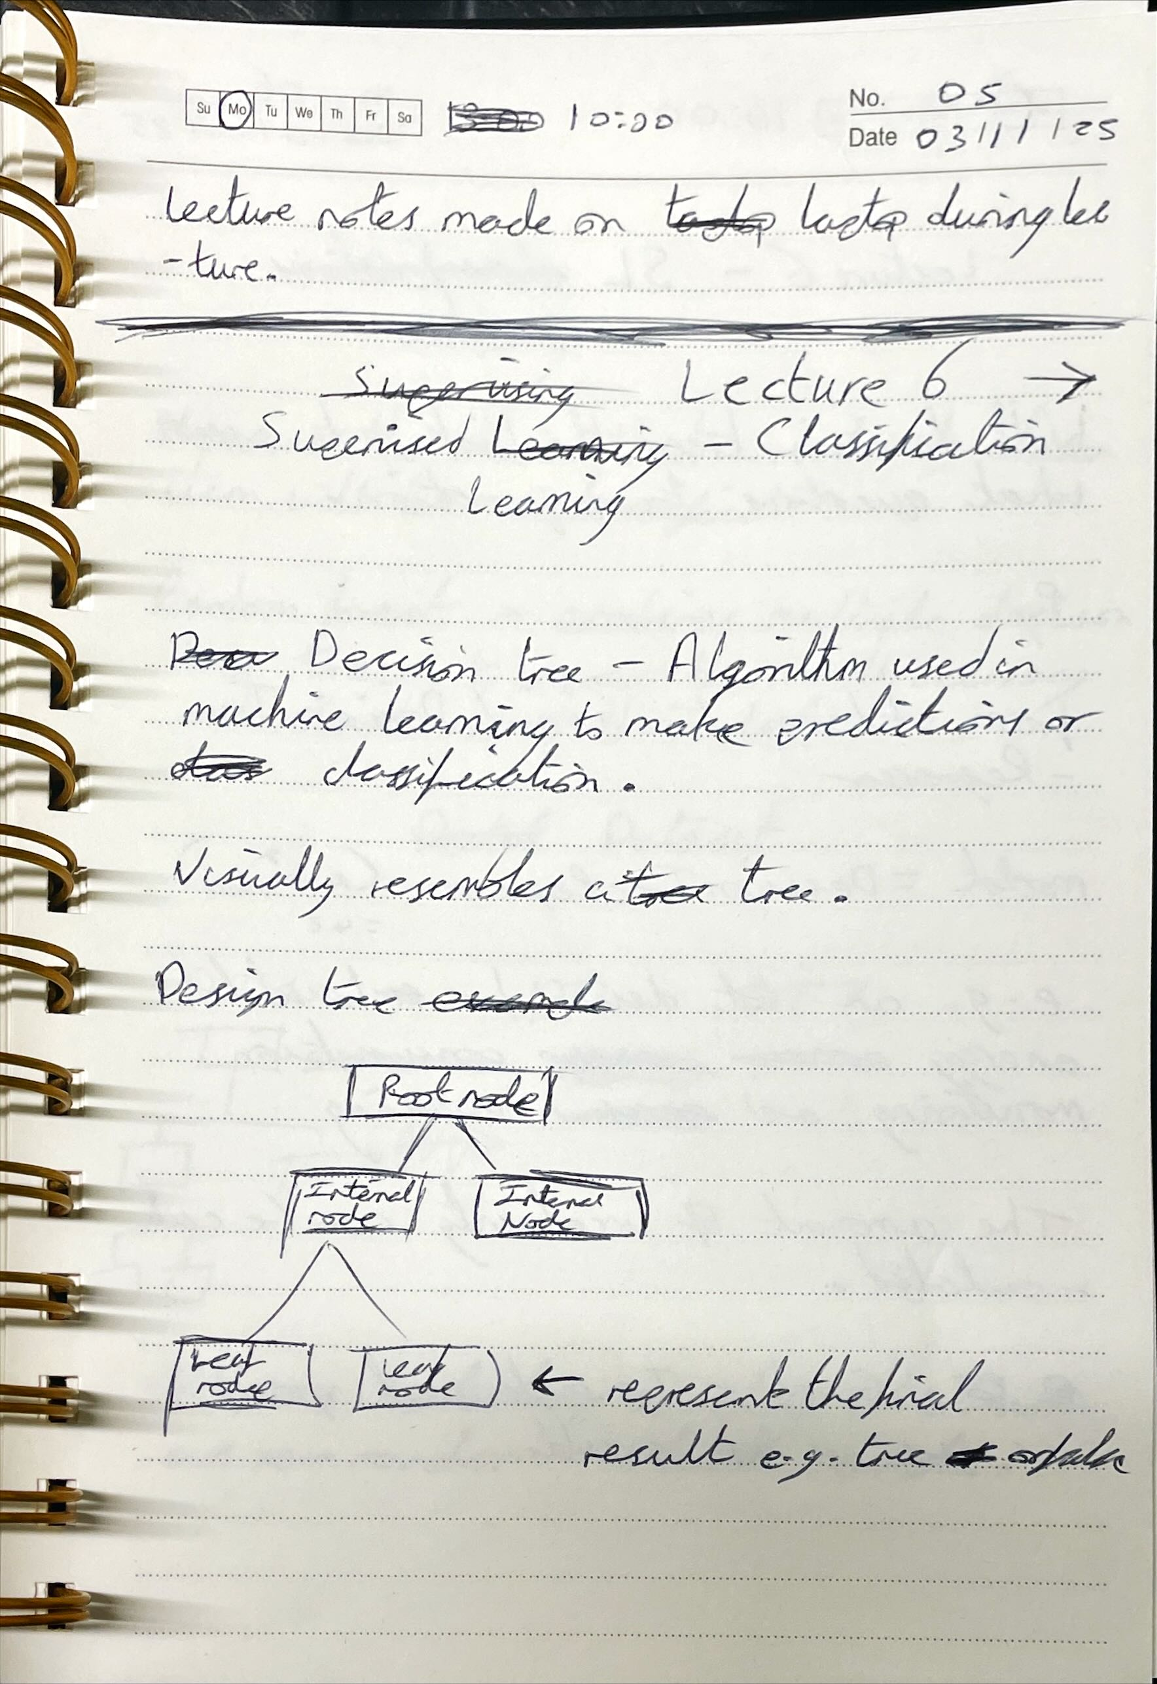 Su Mo Tu We Th Fr Sa 10:00 No. 05
Date 03/11/25
Lecture notes made on laptop during lec
-ture.
Supervising Lecture 6 →
Supervised Learning - Classification
Learning
Decision tree - Algorithm used in
machine learning to make predictions or
classification.
Visually resembles a tree tree.
Design tree example
Root node
Internal node Internal Node
Leaf node Leaf node ← represent the final
result e.g. tree or false